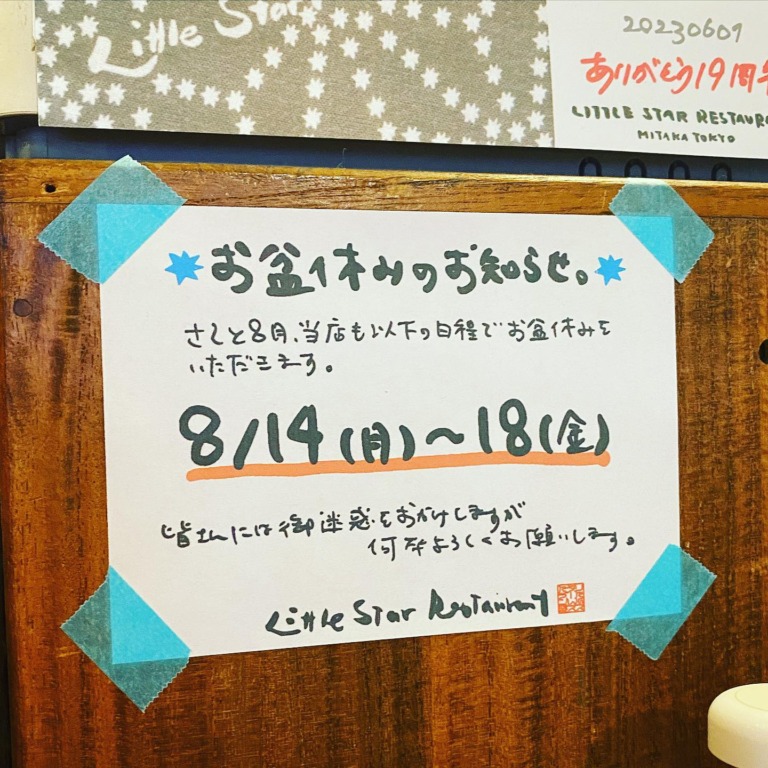 Little Star
20230609
ありがとう19周年
LITTLE STAR RESTAURA
MITAKA TOKYO
お盆休みのお知らせ。
さてと8月、当店も以下の日程でお盆休みを
いただきます。
8/14(月)~18(金)
皆さんには御迷惑をおかけしますが
何卒よろしくお願いします。
Little Star Restaurant